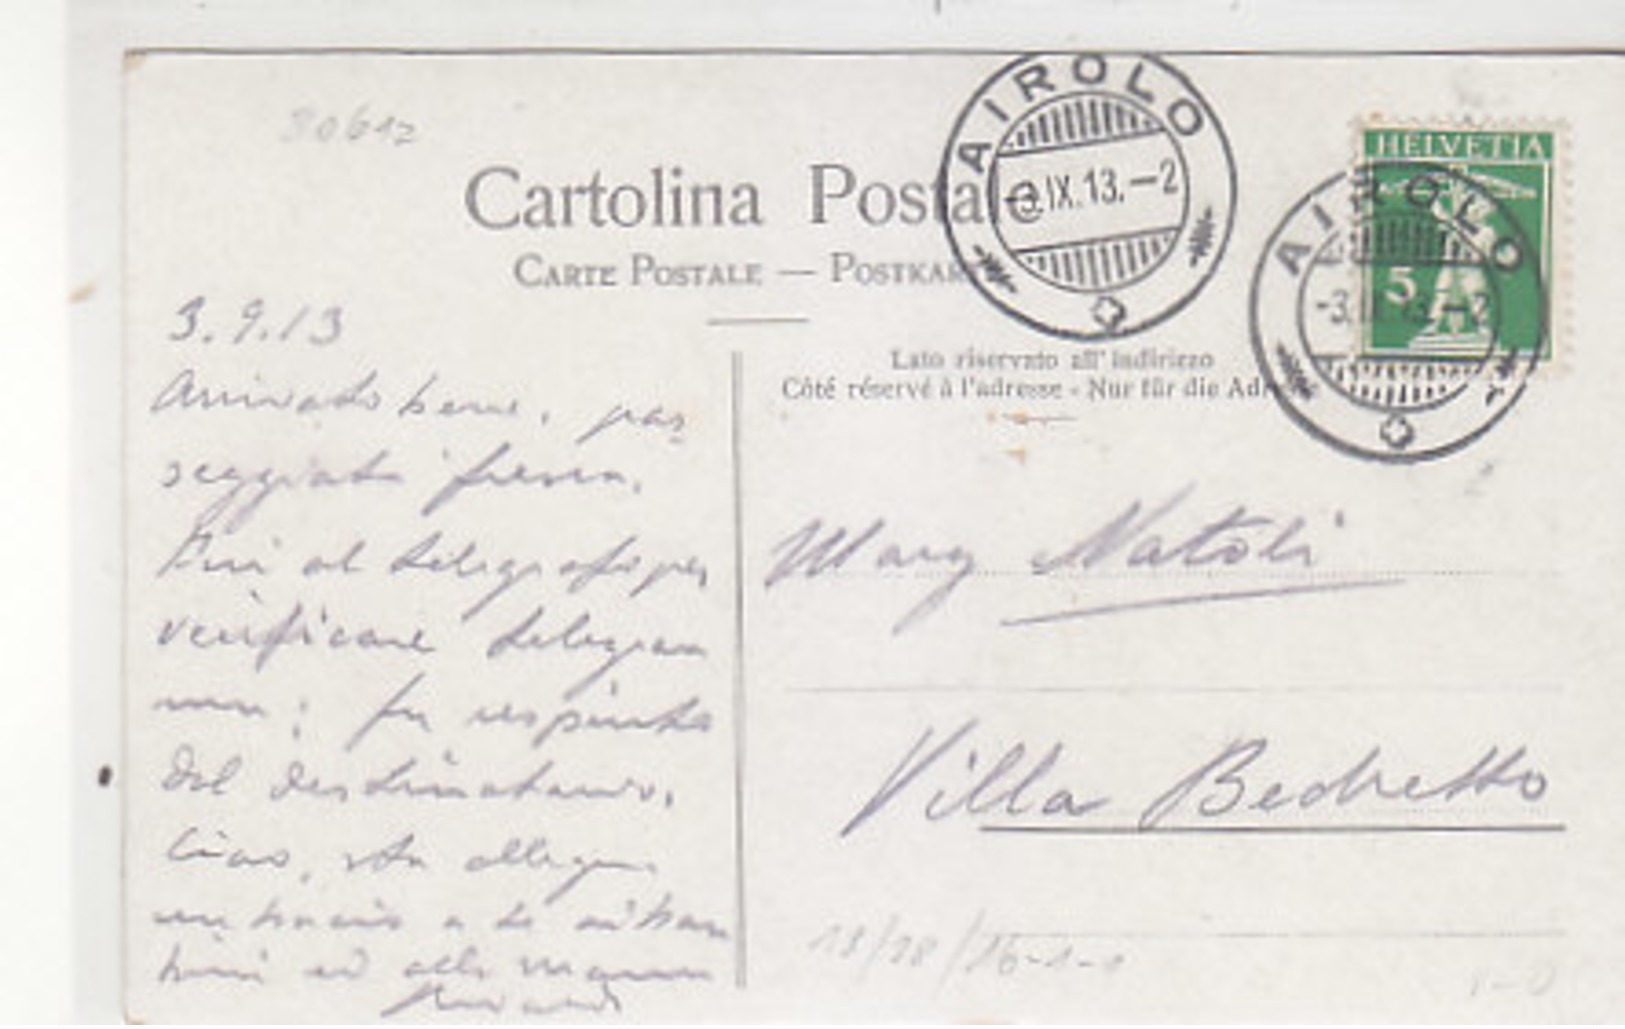 30612
Cartolina Posta
CARTE POSTALE — POSTKAR
AIROLO
-3.IX.13.-2
HELVETIA
5
AIROLO
-3.IX.13.-2
Lato riservato all'indirizzo
Côté réservé à l'adresse - Nur für die Adr
3.9.13
Arrivato bene, pas
seggiata
Fui al telegrafo per
verificare telegram
ma; fu respinto
dal destinatario.
Ciao, sta allegra
un bacio a te ai bam
bini ed alla mamma
Mary Natoli
Villa Bedretto
18/28/16-1-1